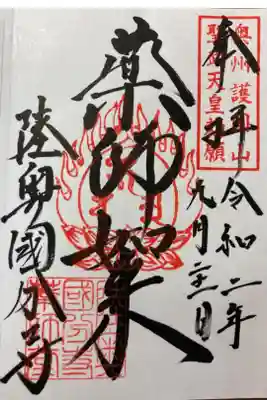 奥州 護国山
聖武天皇勅願
奉拝
令和二年
九月二十二日
薬師如来
陸奥國分寺